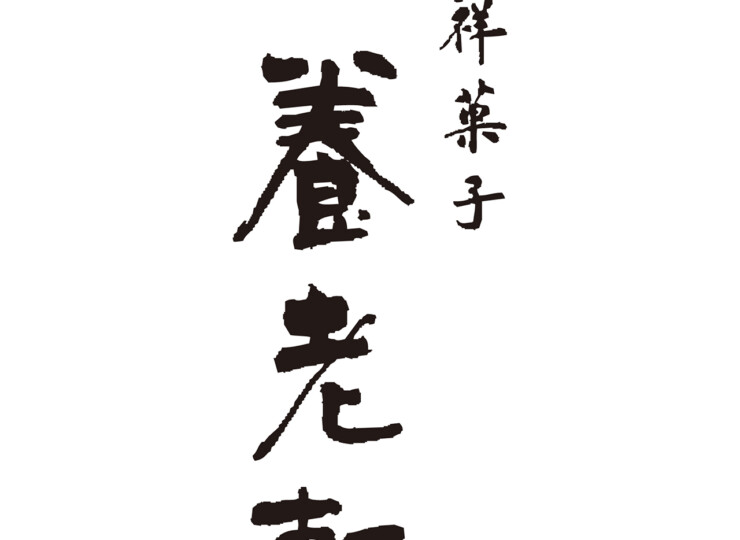 祥菓子
養老軒